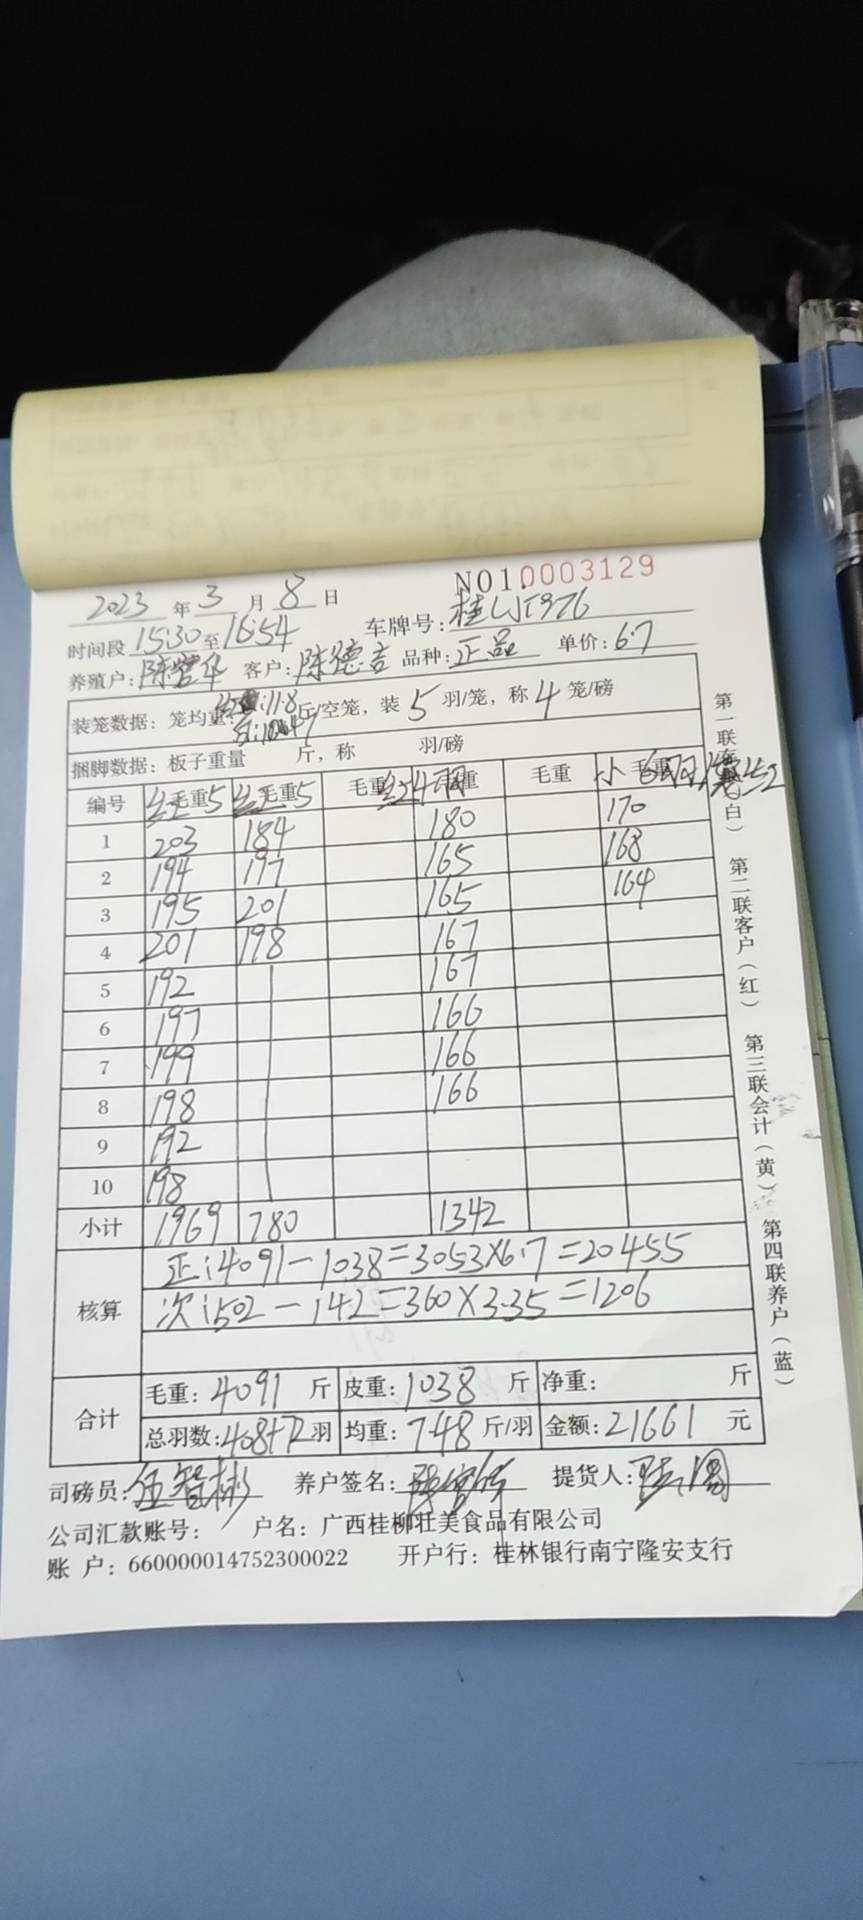 NO10003129
2023 年 3 月 8 日
时间段 15:30 至 16:54 车牌号:
养殖户: 客户: 陈德吉 品种: 正品 单价: 6.7
装笼数据: 笼均重: 11.8 斤/空笼, 装 5 羽/笼, 称 4 笼/磅
捆脚数据: 板子重量 斤, 称 羽/磅
编号 毛重5 毛重5 毛重 毛重 毛重 小 毛重
1 203 184 180 170
2 194 197 165 168
3 195 201 165 164
4 201 198 167
5 192 167
6 197 166
7 199 166
8 198 166
9 192
10 198
小计 1969 780 1342
核算
正:4091-1038=3053×6.7=20455
次:502-142=360×3.35=1206
合计
毛重: 4091 斤 皮重: 1038 斤 净重: 斤
总羽数: 408+72 羽 均重: 7.48 斤/羽 金额: 21661 元
司磅员: 伍智彬 养户签名: 提货人:
公司汇款账号: 户名: 广西桂柳壮美食品有限公司
账 户: 660000014752300022 开户行: 桂林银行南宁隆安支行
第二联客户(红)
第三联会计(黄)
第四联养户(蓝)